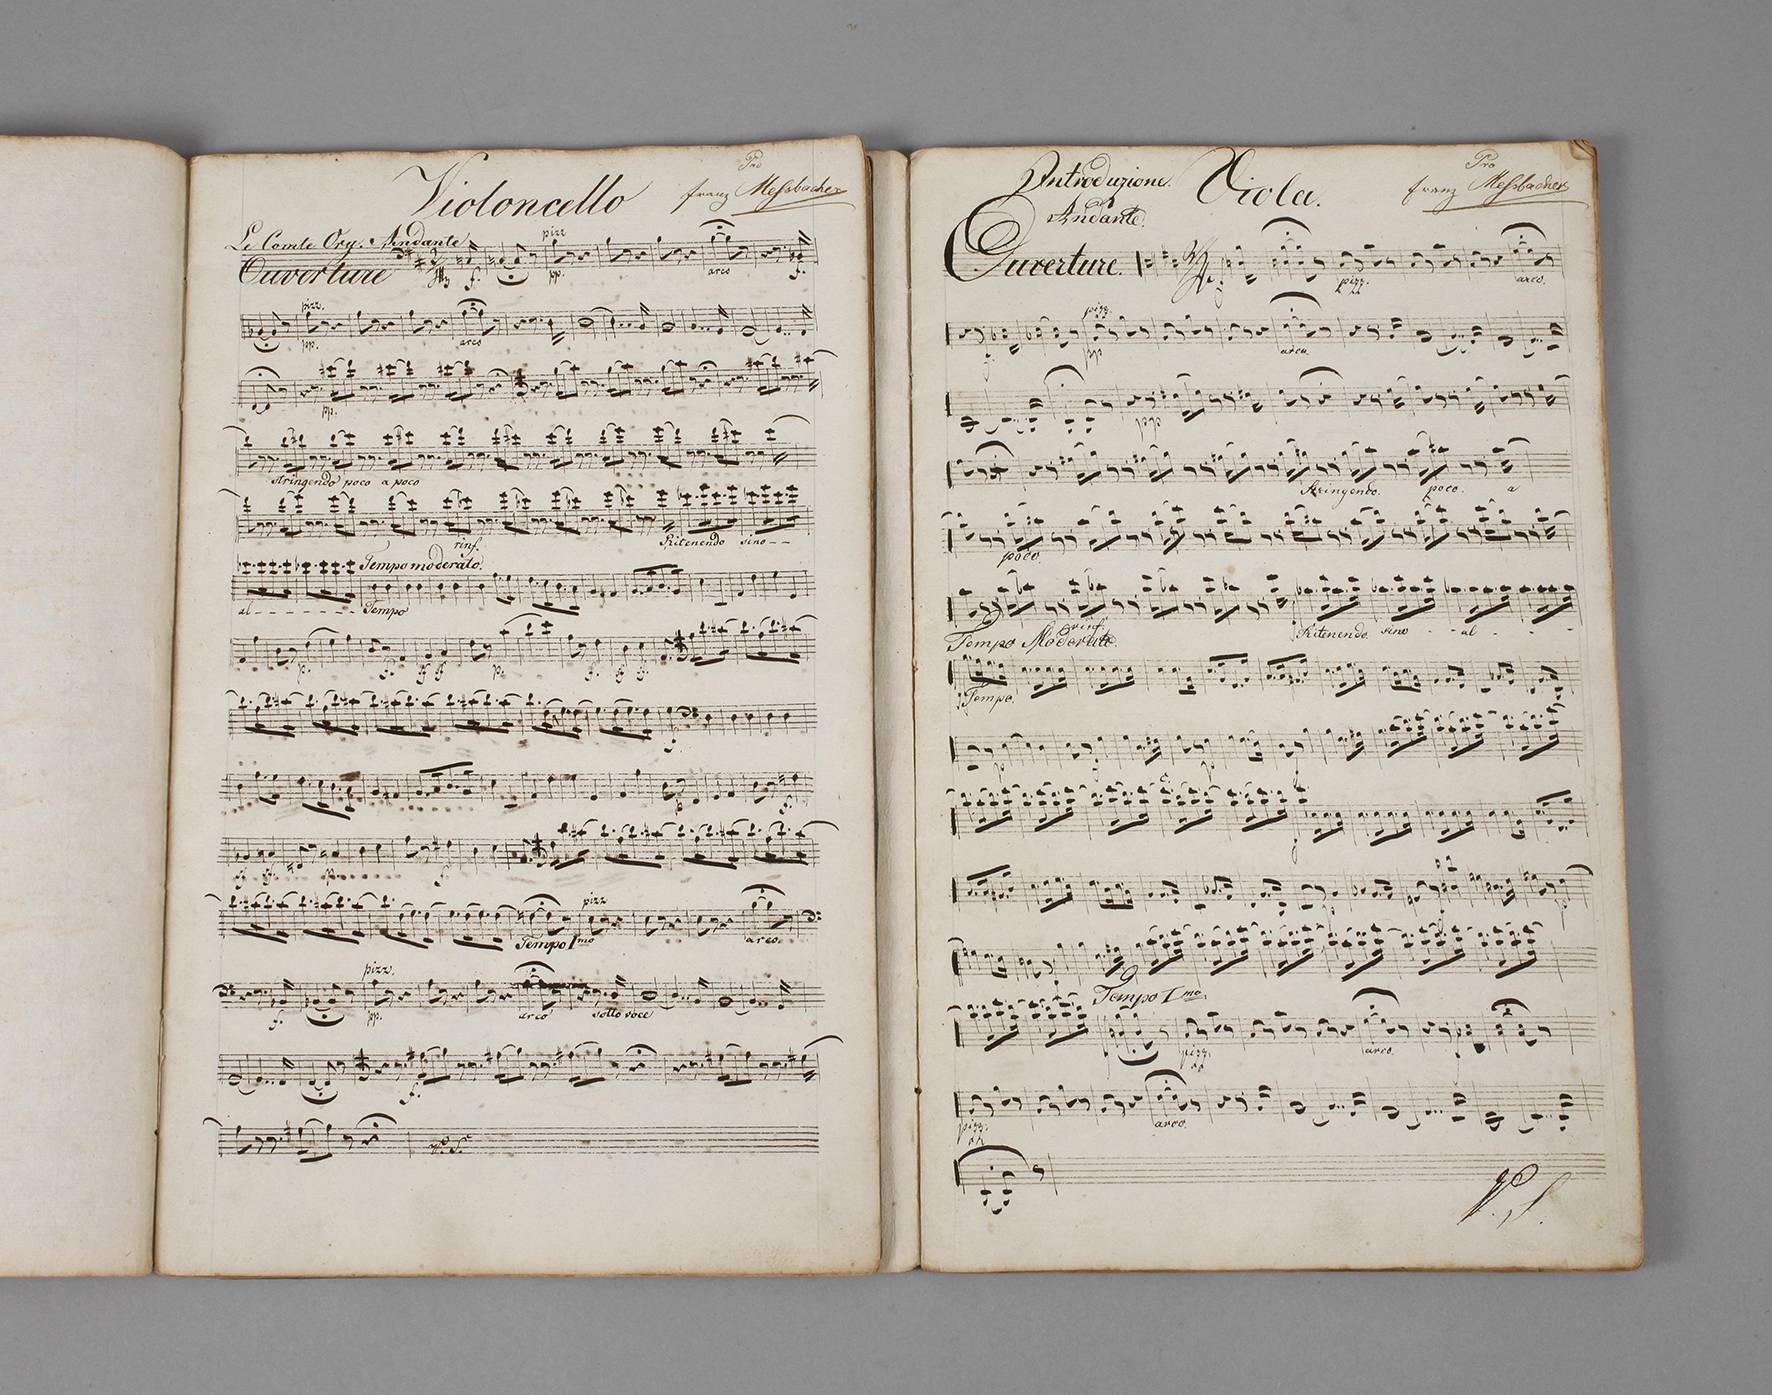 Violoncello
Pro
franz Messbacher
Le Comte Ory. Andante
Ouverture
pizz
f.
pp.
arco
f.
pizz.
pp.
arco
pp.
stringendo poco a poco
rinf.
Ritenendo sino - -
Tempo moderato.
al - - - - - - - Tempo
p.
ff ff
p.
f.
ff
f.
p.
f.
ff ff.
p.
f.
pizz
Tempo Imo
arco.
pizz.
f.
pp.
arco
sotto voce
f.
Introduzione.
Viola.
Pro
franz Messbacher
Andante.
Ouverture.
pizz.
arco.
pizz.
f.
pp
arco.
pp
Stringendo.
poco.
a
poco.
rinf.
Ritenendo sino - - al - - -
Tempo Moderato.
Tempo.
Tempo Imo.
pizz.
arco.
pizz.
arco.
V. S.